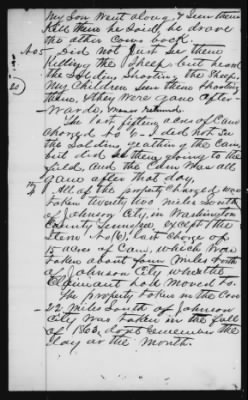 my Son went along & seen them
kill them he said, he drove
the other cows back.
No 5 I did not just see them
killing the Sheep but heard
the Soldiers Shooting the Sheep.
My children seen them shooting
them, & they were gone after-
wards & never returned
The last fifteen acres of Corn
charged to 6 - I did not see
the Soldiers gathering the Corn,
but did see them going to the
field, and the Corn was all
gone after that day,
All of the property charged was
taken twenty two miles South
of Johnson City, in Washington
County Tennessee, except the
item No (6), Last Charge of
15 acres of Corn, which was
taken about four miles North
of Johnson City where the
Claimant had moved to.
The property taken in the Cove
22 miles South of Johnson
City was taken in the fall
of 1863, do not remember the
day or the month.